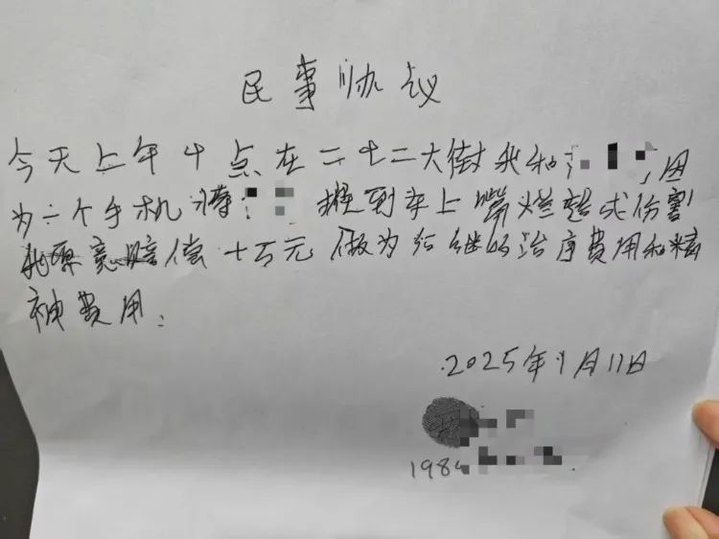 民事协议
今天上午十点在二七二大街我和,因
为一个手机将 推到车上嘴烂造成伤害
我愿意赔偿十万元做为后继的治疗费用和精
神费用.
2025年1月11日
198